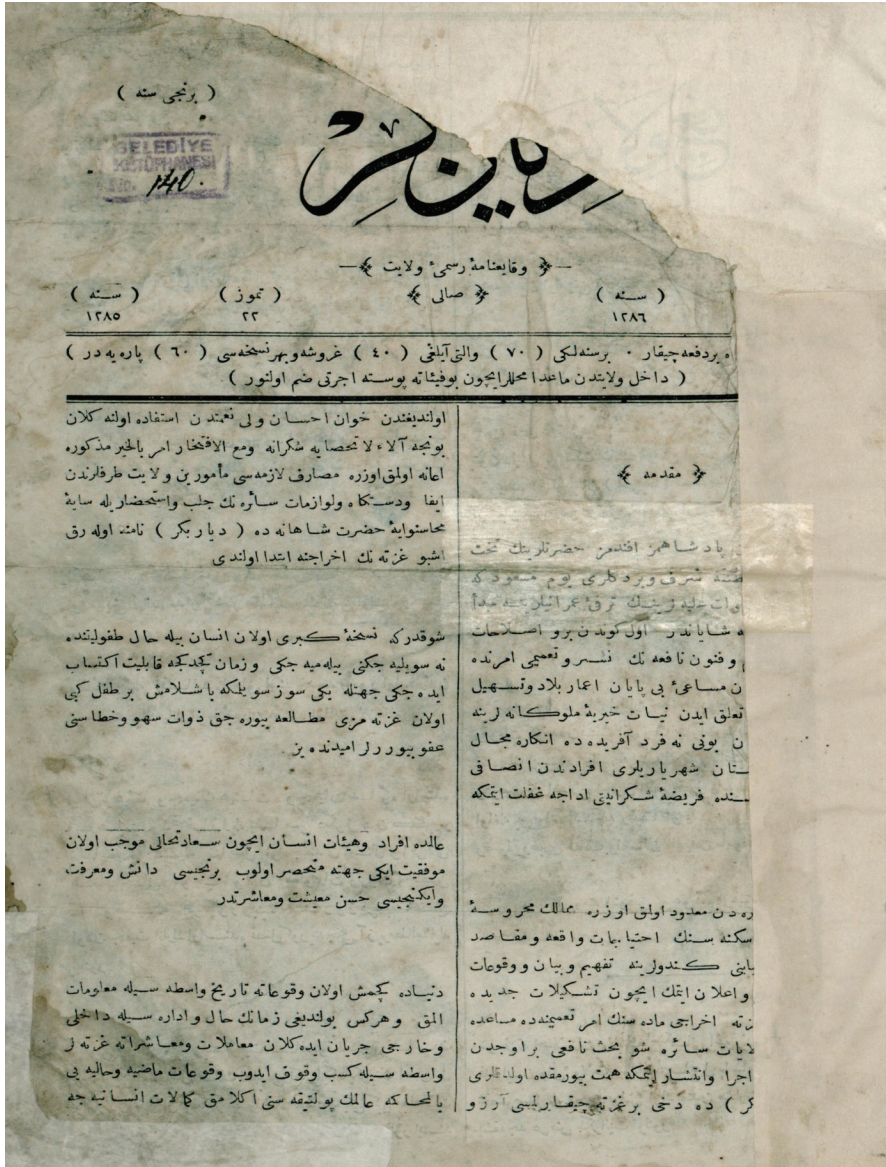 ( برنجی سنه )
BELEDİYE
KÜTÜPHANESİ
140.
وقایعنامهٔ رسمئ ولایت
( سنه ) صالی ( تموز ) ( سنه )
١٢٨٦ ٢٢ ١٢٨٥
ه بردفعه چیقار ٠ برسنه لکی ( ٧٠ ) والتی آیلغی ( ٤٠ ) غروشه وبهر نسخه سی ( ٦٠ ) پاره یه در )
( داخل ولایتدن ماعدا محللر ایچون بوفیئاته پوسته اجرتی ضم اولنور )
مقدمه
پادشاهمز افندمز حضرتلرینك تخت
شرف ویردکلری یوم مسعود که
ترقئ عمرانیلرینه مبدأ
ه شایاندر اول کوندن برو اصلاحات
و فنون نافعه نك نشر و تعمیمی امرنده
ن مساعئ بی پایان اعمار بلاد وتسهیل
تعلق ایدن نیات خیریهٔ ملوکانه لرینه
ن یوتی نه فرد آفریده ده انکاره مجال
ستان شهریاریلری افرادندن انصافی
سنده فریضهٔ شکرانیتی اداجه غفلت ایتمکه
ره دن معدود اولمق اوزره ممالك محروسهٔ
سکنه سنك احتیاجات واقعه ومقاصد
یابنی کندولرینه تفهیم وبیان ووقوعات
واعلان ایتك ایچون تشکیلات جدیده
زته اخراجی ماده سنك امر تعمیمنده مساعده
لایات سائره شو بحث نافعی براوجدن
اجرا وانتشار ایتمکه همت بیورمقده اولدقلری
کر ) ده دخی برغزته چیقارلمسی آرزو
اولندیغندن خوان احسان ولی نعمتدن استفاده اولنه کلان
بونجه آلاء لاتحصایه شکرانه ومع الافتخار امر بالخیر مذکوره
اعانه اولمق اوزره مصارف لازمه سی مأمورین ولایت طرفلرندن
ایفا ودستکاه ولوازمات سائره نك جلب واستحضاریله سایهٔ
محاسنوایهٔ حضرت شاهانه ده ( دیاربکر ) نامنه اوله رق
اشبو غزته نك اخراجنه ابتدا اولندی
شوقدرکه نسخهٔ کبری اولان انسان بیله حال طفولیتنده
نه سویلیه جکنی بیله میه جکی وزمان کچدکجه قابلیت اکتساب
ایده جکی جهتله یکی سوز سویلمکه باشلامش بر طفل کبی
اولان غزته مزی مطالعه بیوره جق ذوات سهو وخطا سنی
عفو بیوررلر امیدنده یز
عالمده افراد وهیئات انسان ایچون سعادتحالی موجب اولان
موفقیت ایکی جهته منحصر اولوب برنجیسی دانش ومعرفت
وایکنجیسی حسن معیشت ومعاشرتدر
دنیاده کچمش اولان وقوعاته تاریخ واسطه سیله معلومات
المق وهرکس بولندیغی زمانك حال واداره سیله داخلی
وخارجی جریان ایده کلان معاملات ومعاشراته غزته لر
واسطه سیله کسب وقوف ایدوب وقوعات ماضیه وحالیه یی
بالمحاکمه عالمك پولتیقه سنی اکلامق کمالات انسانیه جه